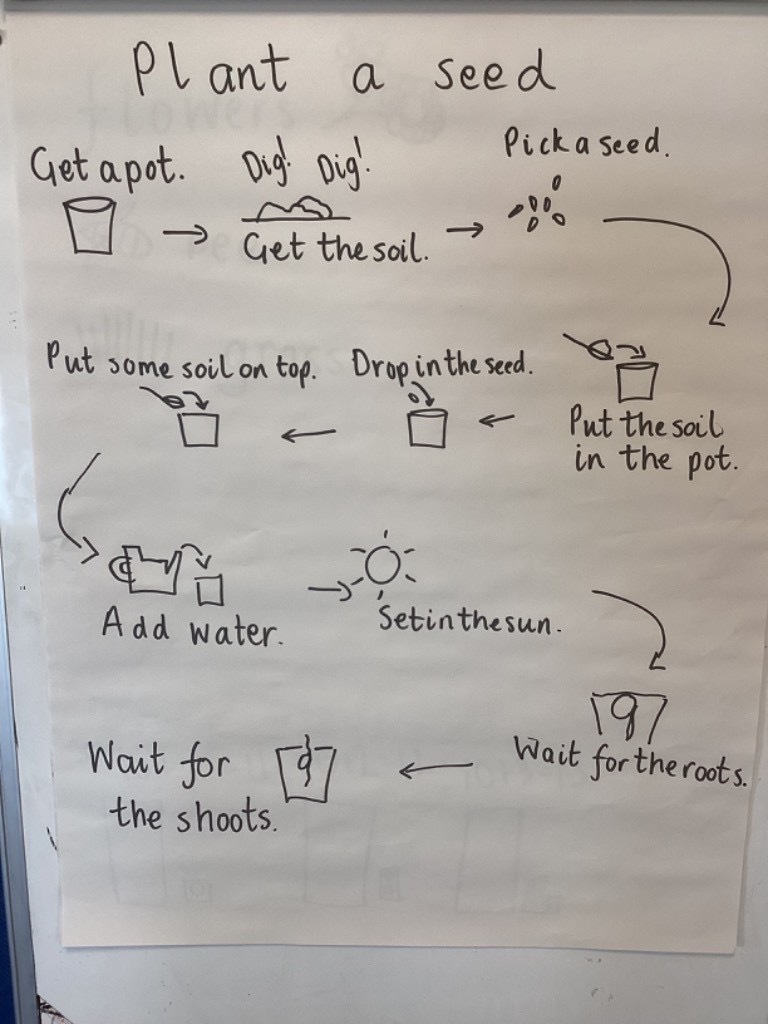 Plant a seed
Get a pot.
Dig! Dig!
Get the soil.
Pick a seed.
Put the soil
in the pot.
Drop in the seed.
Put some soil on top.
Add water.
Set in the sun.
Wait for the roots.
Wait for
the shoots.